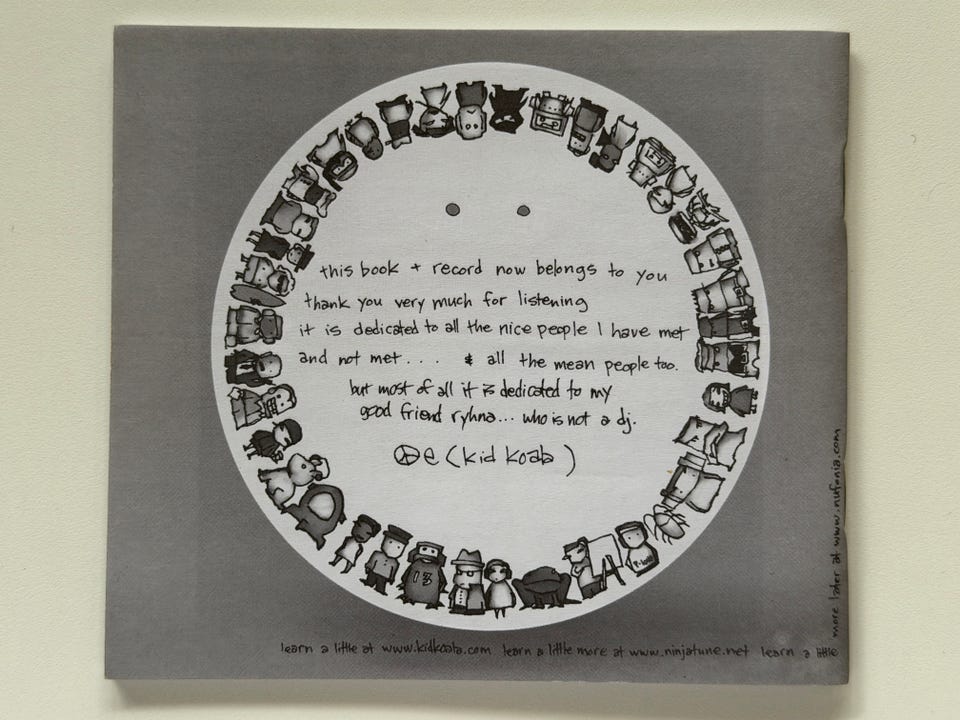 this book + record now belongs to you
thank you very much for listening
it is dedicated to all the nice people I have met
and not met... & all the mean people too.
but most of all it is dedicated to my
good friend ryhna... who is not a dj.
e (kid koala)
13
A
learn a little at www.kidkoala.com learn a little more at www.ninjatune.net learn a little
more later at www.nufonia.com